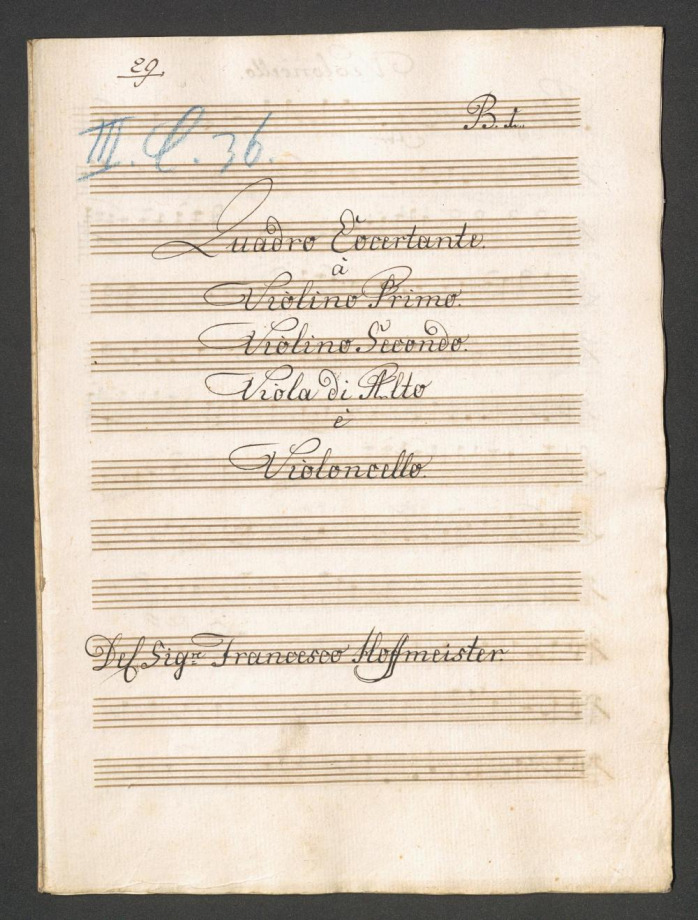 29.
B.
III. C. 36.
Quadro Cõcertante.
à
Violino Primo.
Violino Secondo.
Viola di Alto
è
Violoncello.
Del Sigr. Francesco Hoffmeister.